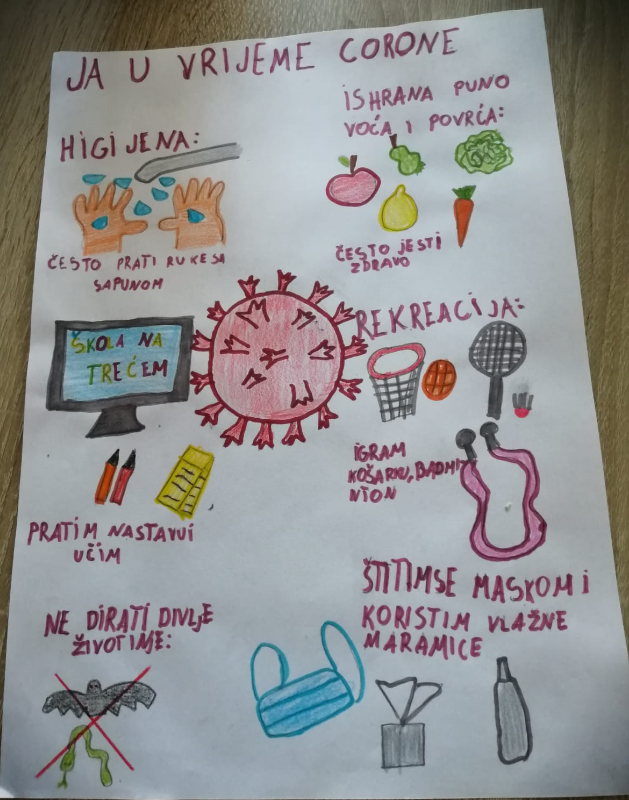 JA U VRIJEME CORONE
HIGIJENA:
ČESTO PRATI RUKE SA
SAPUNOM
ISHRANA PUNO
VOĆA I POVRĆA:
ČESTO JESTI
ZDRAVO
ŠKOLA NA
TREĆEM
PRATIM NASTAVUI
UČIM
REKREACIJA:
IGRAM
KOŠARKU, BADMI
NTON
NE DIRATI DIVLJE
ŽIVOTINJE:
ŠTITIM SE MASKOM I
KORISTIM VLAŽNE
MARAMICE